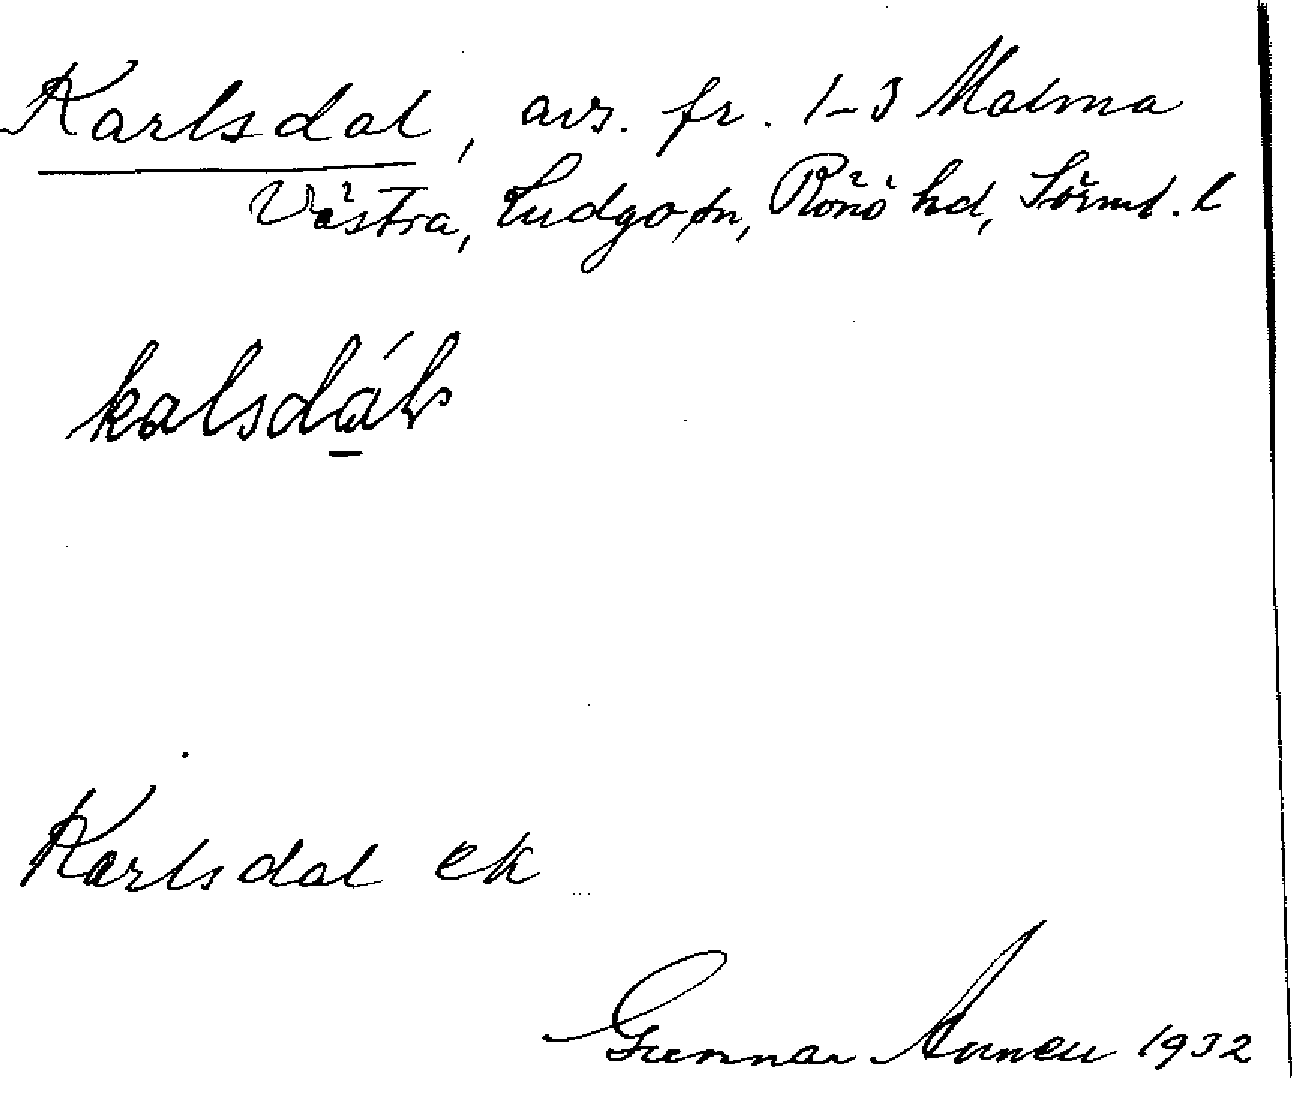 Karlsdal, avs. fr. 1-3 Malma
Västra, Ludgo sn, Rönö hd, Sörml. l
kalsdál
Karlsdal ek
Gunnar 1932